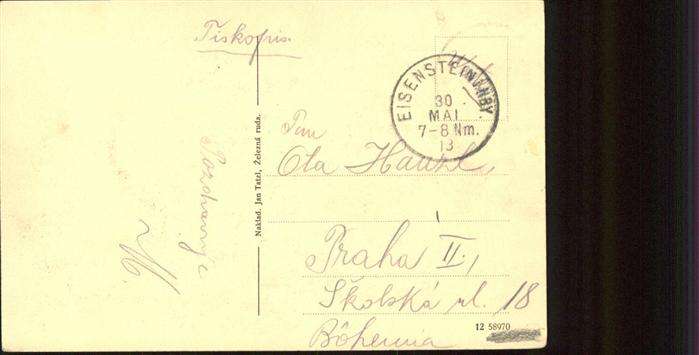 Tiskopis.
EISENSTEIN
30
MAI
7-8 Nm.
13
Pozdravuje
M
Naklad. Jan Tatzl, Železná ruda.
Pan
Ota
Praha II.,
Školská ul. 18
Böhemia
12 58970